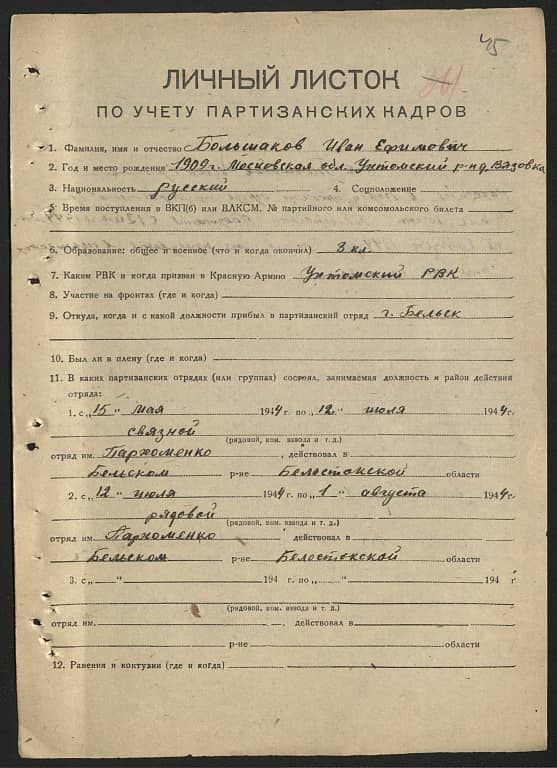 45
ЛИЧНЫЙ ЛИСТОК
ПО УЧЕТУ ПАРТИЗАНСКИХ КАДРОВ
1. Фамилия, имя и отчество Большаков Иван Ефимович
2. Год и место рождения 1909 г. Московская обл. Ухтомский р-н д. Вязовка
3. Национальность русский 4. Соцположение
5. Время поступления в ВКП(б) или ВЛКСМ, № партийного или комсомольского билета
6. Образование: общее и военное (что и когда окончил) 3 кл.
7. Каким РВК и когда призван в Красную Армию Ухтомский РВК
8. Участие на фронтах (где и когда)
9. Откуда, когда и с какой должности прибыл в партизанский отряд г. Бельск
10. Был ли в плену (где и когда)
11. В каких партизанских отрядах (или группах) состоял, занимаемая должность и район действия
отряда:
1. с „15“ мая 1944 г. по „12“ июля 1944 г.
связной
(рядовой, ком. взвода и т. д.)
отряд им. Пархоменко, действовал в
Бельском р-не Белостокской области
2. с „12“ июля 1944 г. по „1“ августа 1944 г.
рядовой
(рядовой, ком. взвода и т. д.)
отряд им. Пархоменко действовал в
Бельском р-не Белостокской области
3. с „ “ 194 г. по „ “ 194 г
(рядовой, ком. взвода и т. д.)
отряд им. , действовал в
р-не области
12. Ранения и контузии (где и когда)